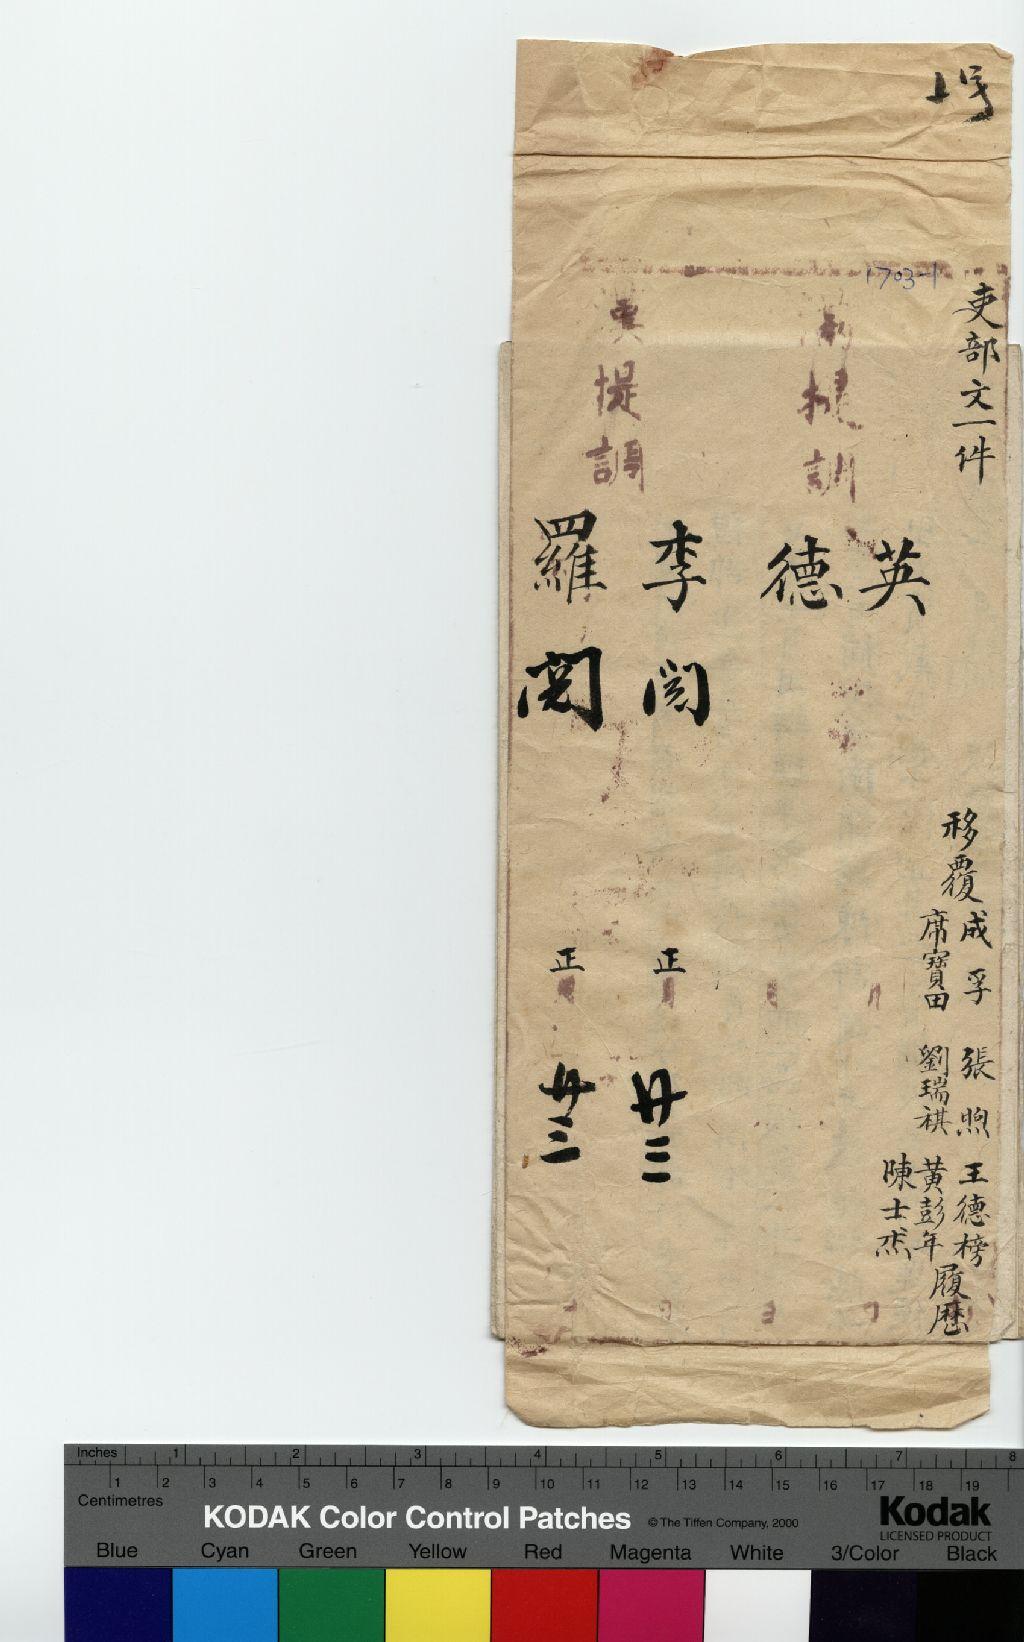 1703-1
吏部文一件
移覆
成孚 張煦 王德榜
席寶田 劉瑞祺 黃彭年
陳士杰
履歷
提調
英
德
提調
李 閱 正月 廿三
羅 閱 正月 廿三
日
Inches 1 2 3 4 5 6 7 8
Centimetres 1 2 3 4 5 6 7 8 9 10 11 12 13 14 15 16 17 18 19
KODAK Color Control Patches © The Tiffen Company, 2000
Kodak
LICENSED PRODUCT
Blue Cyan Green Yellow Red Magenta White 3/Color Black